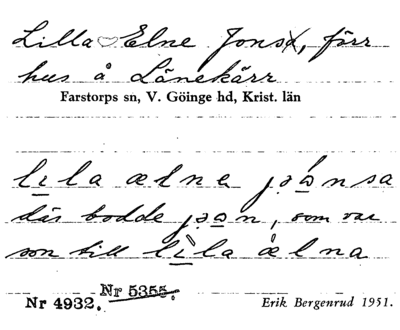 Lilla Elne Jons, förr
hus å Lönekärr
Farstorps sn, V. Göinge hd, Krist. län
lila ælne jɔånsa
där bodde jɔan, som var
son till lìla ælna
Nr 5355.
Nr 4932. Erik Bergenrud 1951.